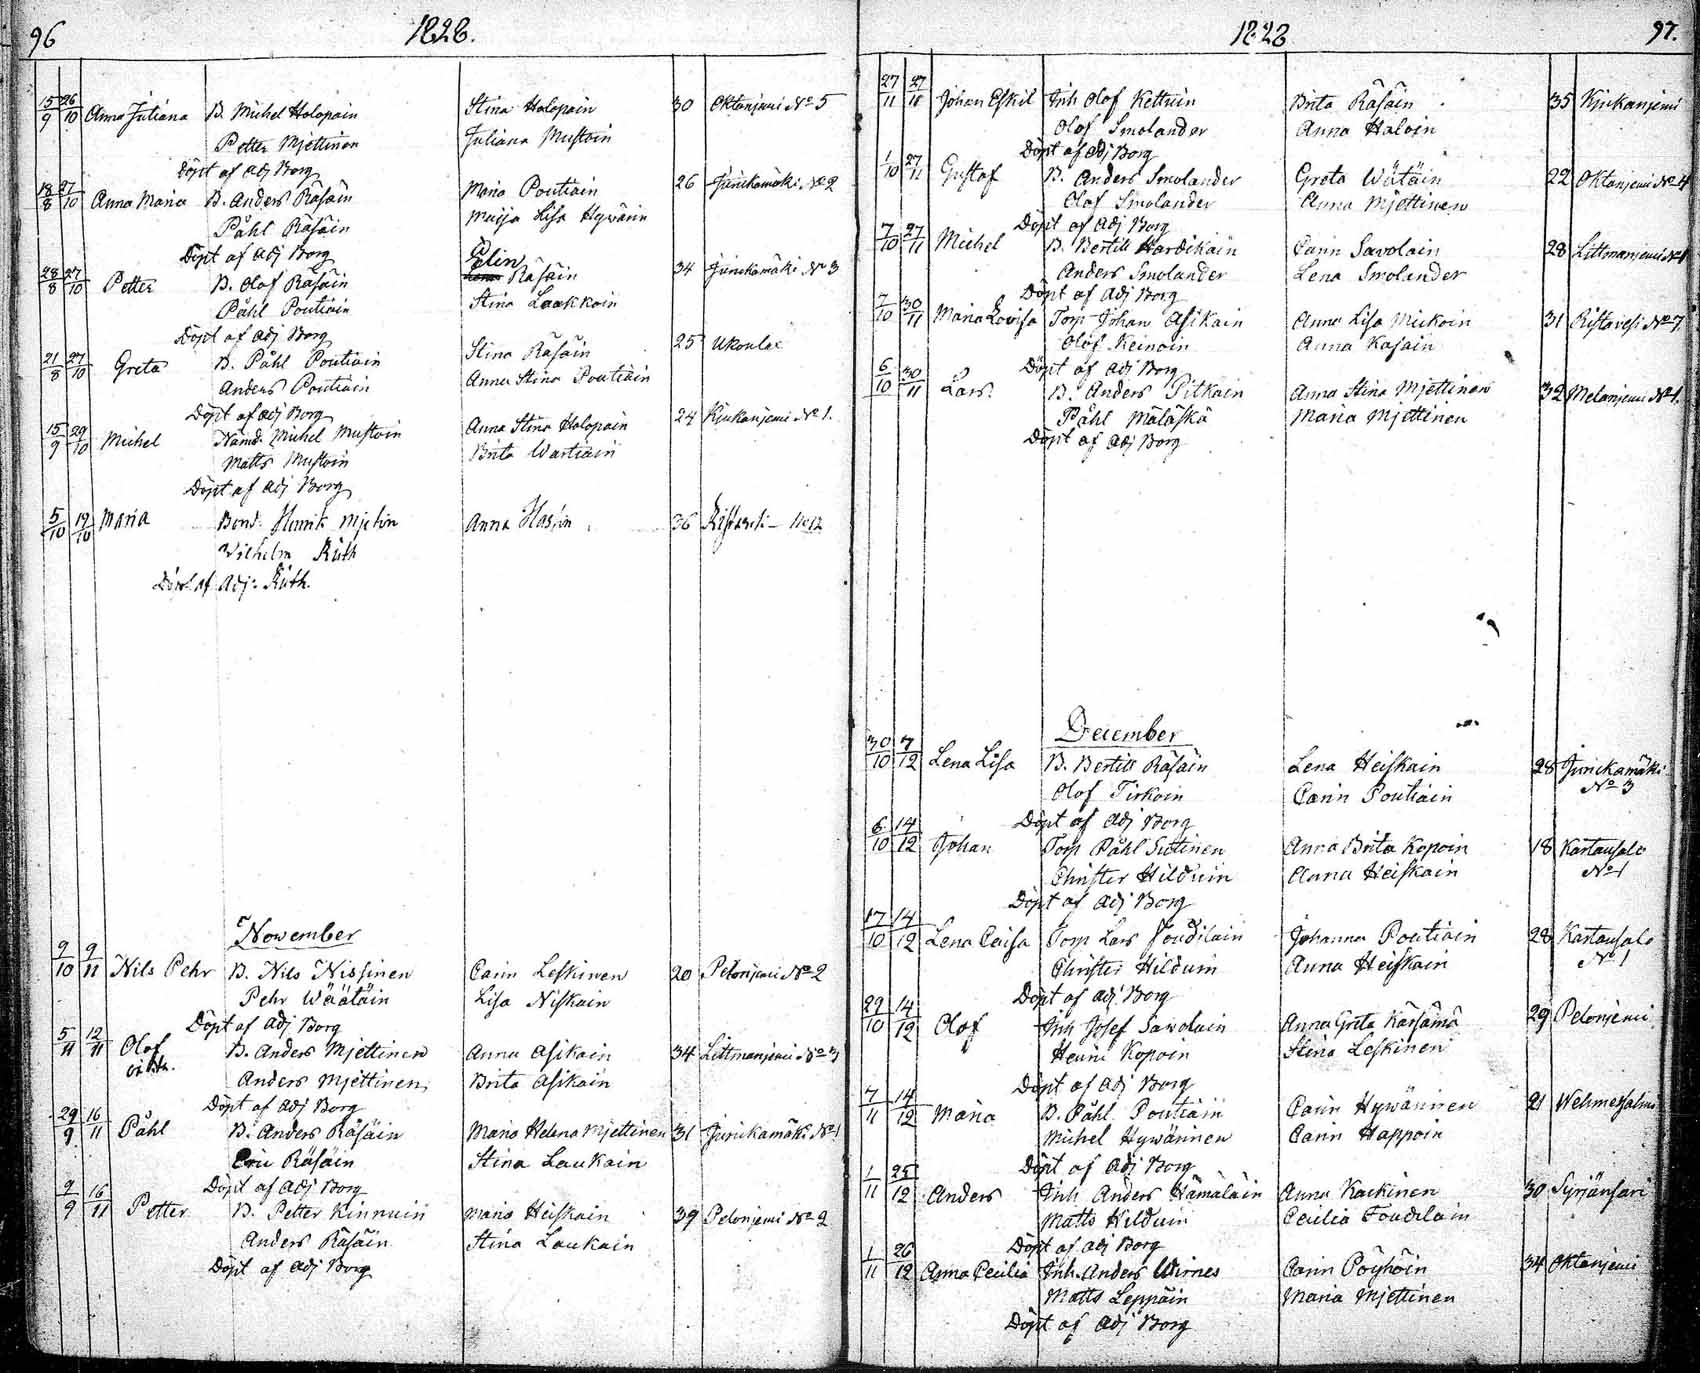 96 1828.
15/9 26/10 Anna Juliana B. Michel Holopain Stina Holopain 30 Oktanjemi No 5
Petter Mjettinen Juliana Mustoin
Döpt af Adj Borg
18/8 27/10 Anna Maria B. Anders Räsäin Maria Poutiain 26 Jurickamäki No 2
Påhl Räsäin Maija Lisa Hywärin
Döpt af Adj Borg
28/8 27/10 Petter B. Olof Räsäin Elin Räsäin 34 Jurickamäki No 3
Påhl Poutiain Stina Laakkoin
Döpt af Adj Borg
21/8 27/10 Greta B. Påhl Poutiain Stina Räsäin 25 Ukonlax
Anders Poutiain Anna Stina Poutiain
Döpt af adj Borg
15/9 29/10 Michel Nämd. Michel Mustoin Anna Stina Holopain 24 Kjukanjemi No 1.
Matts Mustoin Brita Wartiain
Döpt af Adj Borg
5/10 19/10 Maria Bond. Henrik Mjetin Anna 36 No 12
Wilhelm Ruth
Döpt af Adj: Ruth.
November
9/10 9/11 Nils Pehr B. Nils Nissinen Carin Leskinen 20 Pelonjemi No 2
Pehr Wäätäin Lisa Niskain
Döpt af Adj Borg
5/11 12/11 Olof B. Anders Mjettinen Anna Asikain 34 Littmanjemi No 3
Anders Mjettinen Brita Asikain
Döpt af Adj Borg
29/9 16/11 Påhl B. Anders Räsäin Maria Helena Mjettinen 31 Jurickamäki No 1
Eric Räsäin Stina Laukain
Döpt af Adj Borg
9/9 16/11 Petter B. Petter Kinnuin Maria Heiskain 39 Pelonjemi No 2
Anders Räsäin Stina Laukain
Döpt af Adj Borg
1828 97.
27/11 27/11 Johan Eskil Inh Olof Kettuin Brita Räsäin 35 Kjukanjemi
Olof Smolander Anna Haloin
Döpt af Adj Borg
1/10 27/11 Gustaf B. Anders Smolander Greta Wätäin 22 Oktanjemi No 4
Olof Smolander Anna Mjettinen
Döpt af Adj Borg
7/10 27/11 Michel B. Bertill Hardikain Carin Savolain 28 Littmanjemi No 1
Anders Smolander Lena Smolander
Döpt af Adj Borg
7/10 30/11 Maria Lovisa Torp Johan Asikain Anna Lisa Mickoin 31 Ristavesi No 7
Olof Keinoin Anna Kasain
Döpt af Adj Borg
6/10 30/11 Lars. B. Anders Pitkain Anna Stina Mjettinen 32 Melanjemi No 1.
Påhl Mäläskä Maria Mjettinen
Döpt af Adj Borg
December
30/10 7/12 Lena Lisa B. Bertill Räsäin Lena Heiskain 28 Jurickamäki
Olof Tirkoin Carin Poutiain No 3
Döpt af Adj Borg
6/10 14/12 Johan Torp Påhl Sutinen Anna Brita Kopoin 18 Kartansalo
Christer Hilduin Anna Heiskain No 1
Döpt af Adj Borg
17/10 14/12 Lena Caisa Torp Lars Foudilain Johanna Poutiain 28 Kartansalo
Christer Hilduin Anna Heiskain No 1
Döpt af Adj Borg
29/10 14/12 Olof Inh Josef Sawolain Anna Greta Kärsämä 29 Pelonjemi
Henric Kopoin Stina Leskinen
Döpt af Adj Borg
7/11 14/12 Maria B. Påhl Poutiain Carin Hywärinen 21 Wehmersalmi
Michel Hywärinen Carin Happoin
Döpt af Adj Borg
1/11 25/12 Anders Inh Anders Hämäläin Anna Kackinen 30 Syrjänsari
Matts Hilduin Cecilia Foudilain
Döpt af adj Borg
1/11 26/12 Anna Cecilia Inh. Anders Wirnes Carin Pöyhöin 34 Oktanjemi
Matts Leppäin Maria Mjettinen
Döpt af Adj Borg